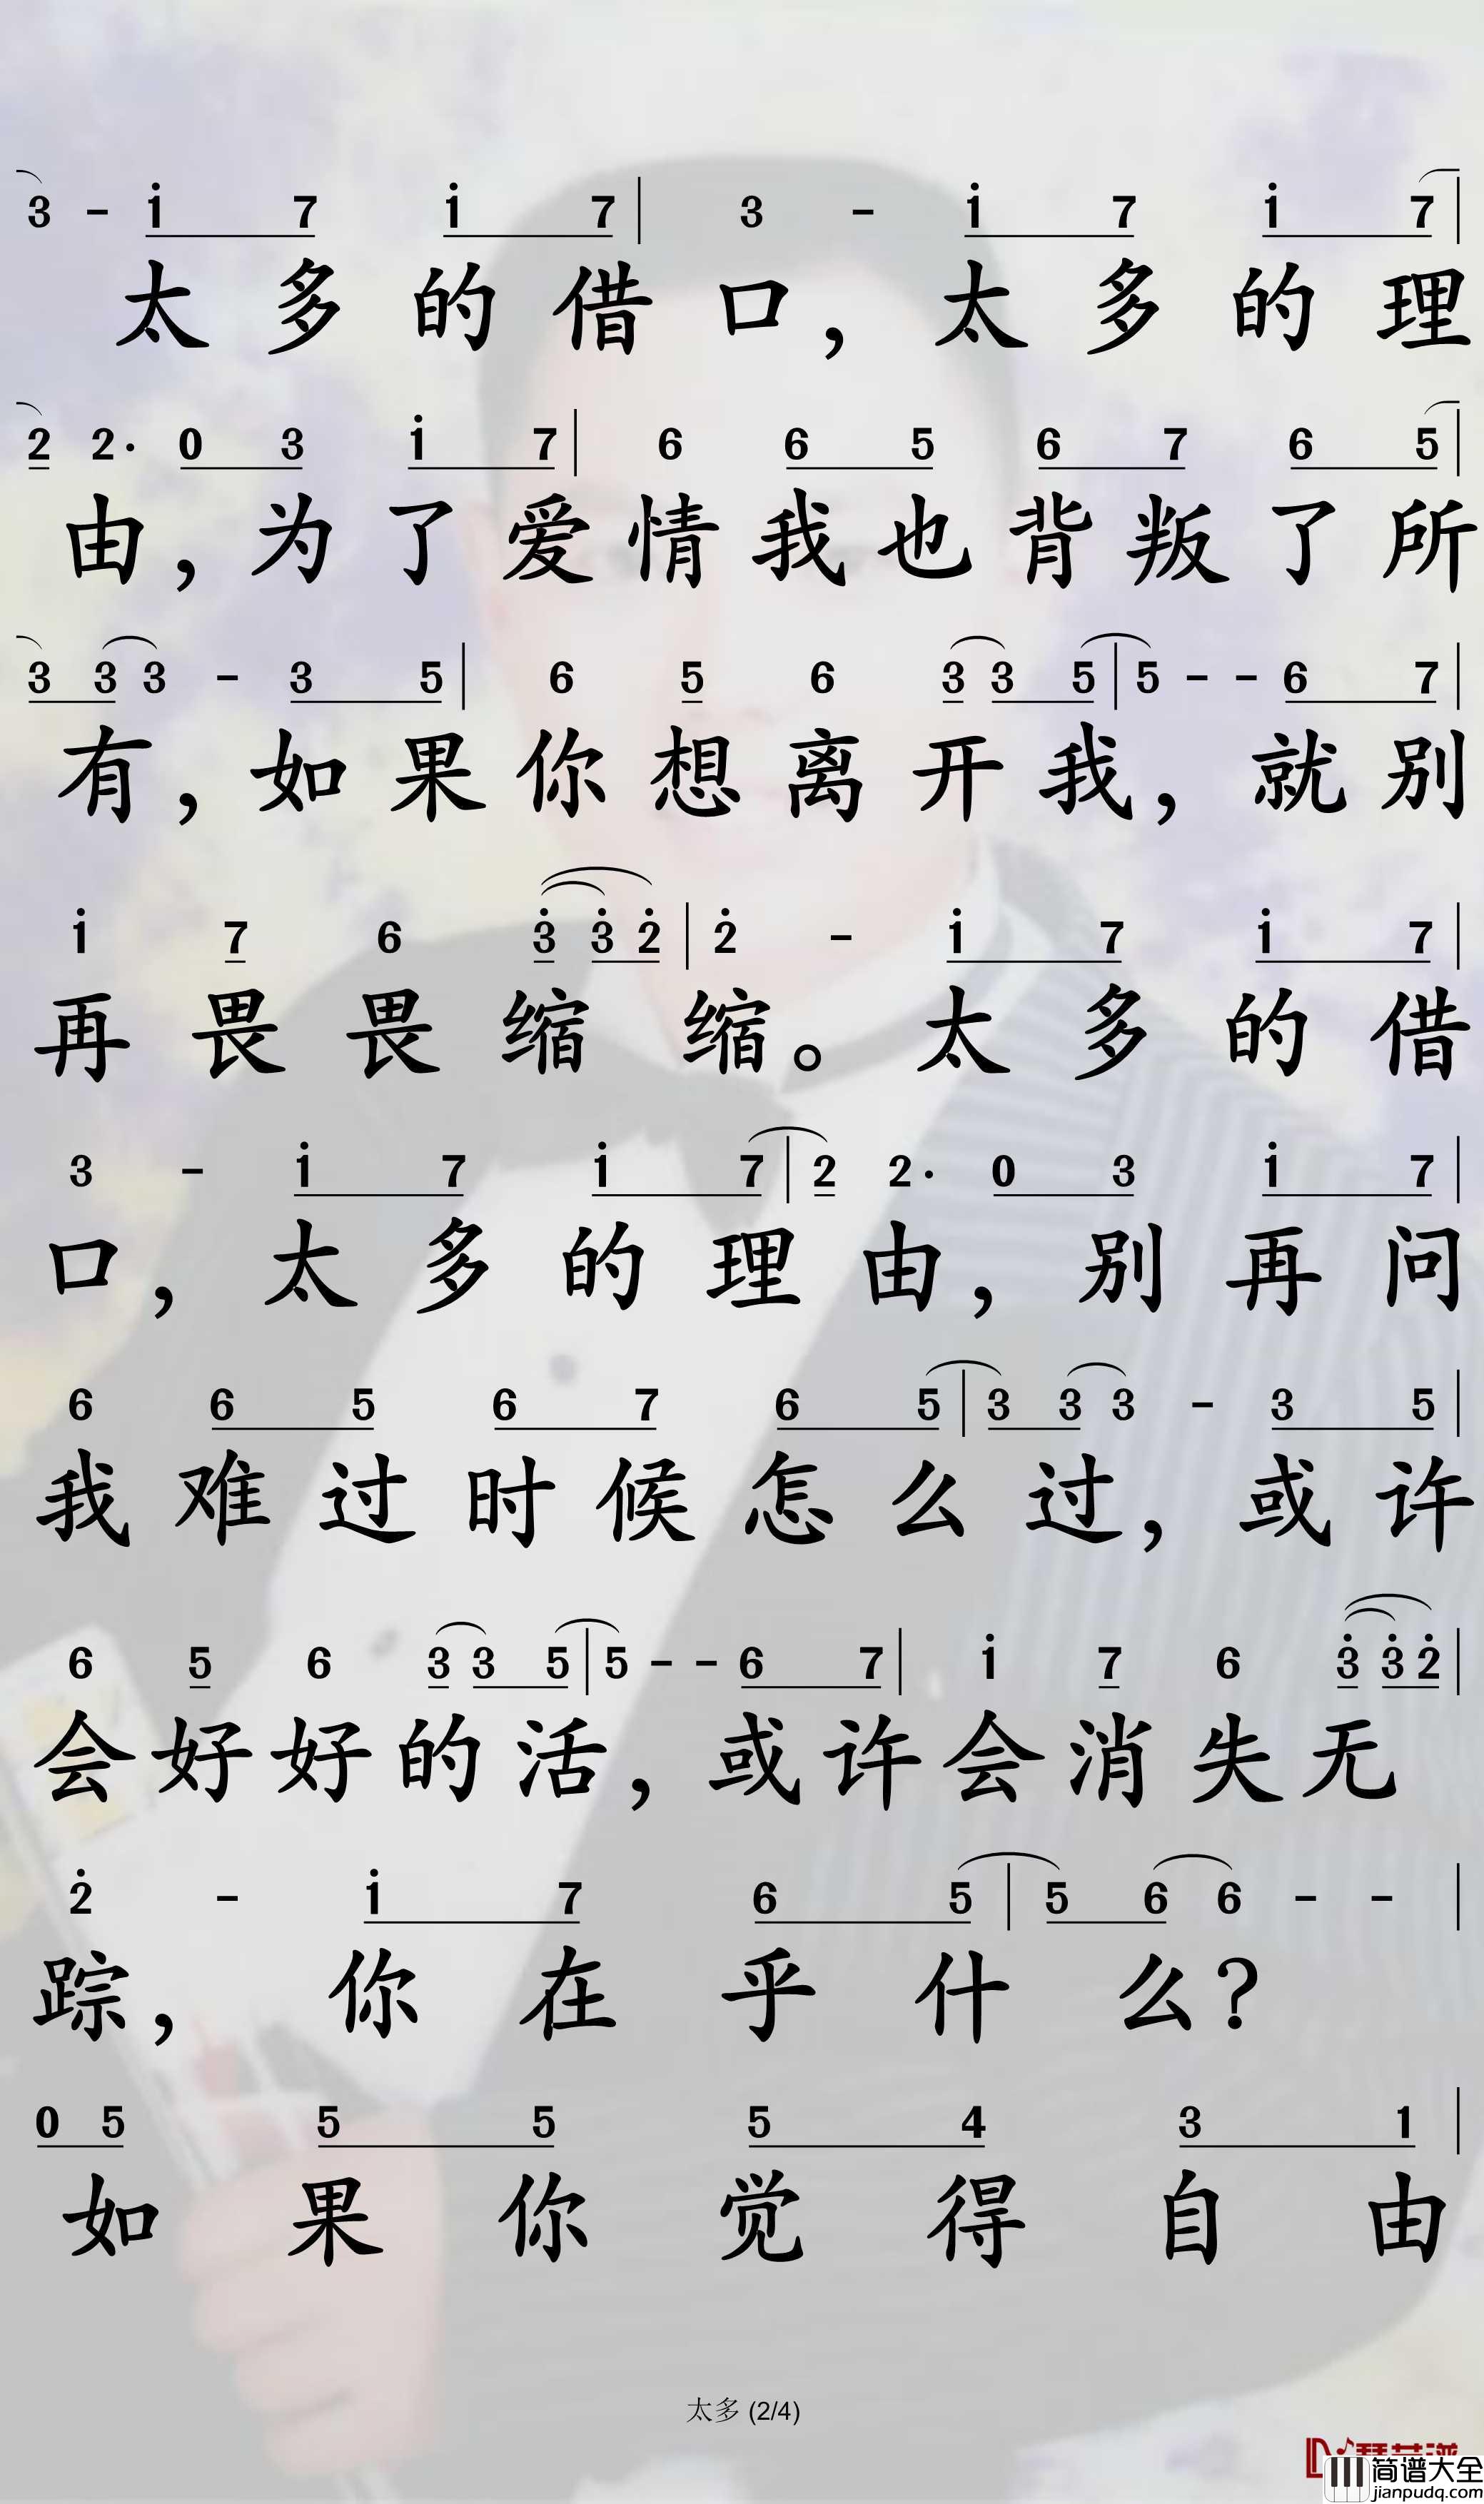 3 - i 7 i 7 | 3 - i 7 i 7 |
太多的借口，太多的理
2 2· 0 3 i 7 | 6 6 5 6 7 6 5 |
由，为了爱情我也背叛了所
3 3 3 - 3 5 | 6 5 6 3 3 5 | 5 - - 6 7 |
有，如果你想离开我，就别
i 7 6 3̇ 3̇ 2̇ | 2̇ - i 7 i 7 |
再畏畏缩缩。太多的借
3 - i 7 i 7 | 2 2· 0 3 i 7 |
口，太多的理由，别再问
6 6 5 6 7 6 5 | 3 3 3 - 3 5 |
我难过时候怎么过，或许
6 5 6 3 3 5 | 5 - - 6 7 | i 7 6 3̇ 3̇ 2̇ |
会好好的活，或许会消失无
2̇ - i 7 6 5 | 5 6 6 - - |
踪，你在乎什么？
0 5 5 5 5 4 3 1 |
如果你觉得自由
太多 (2/4)
简谱大全
jianpudq.com